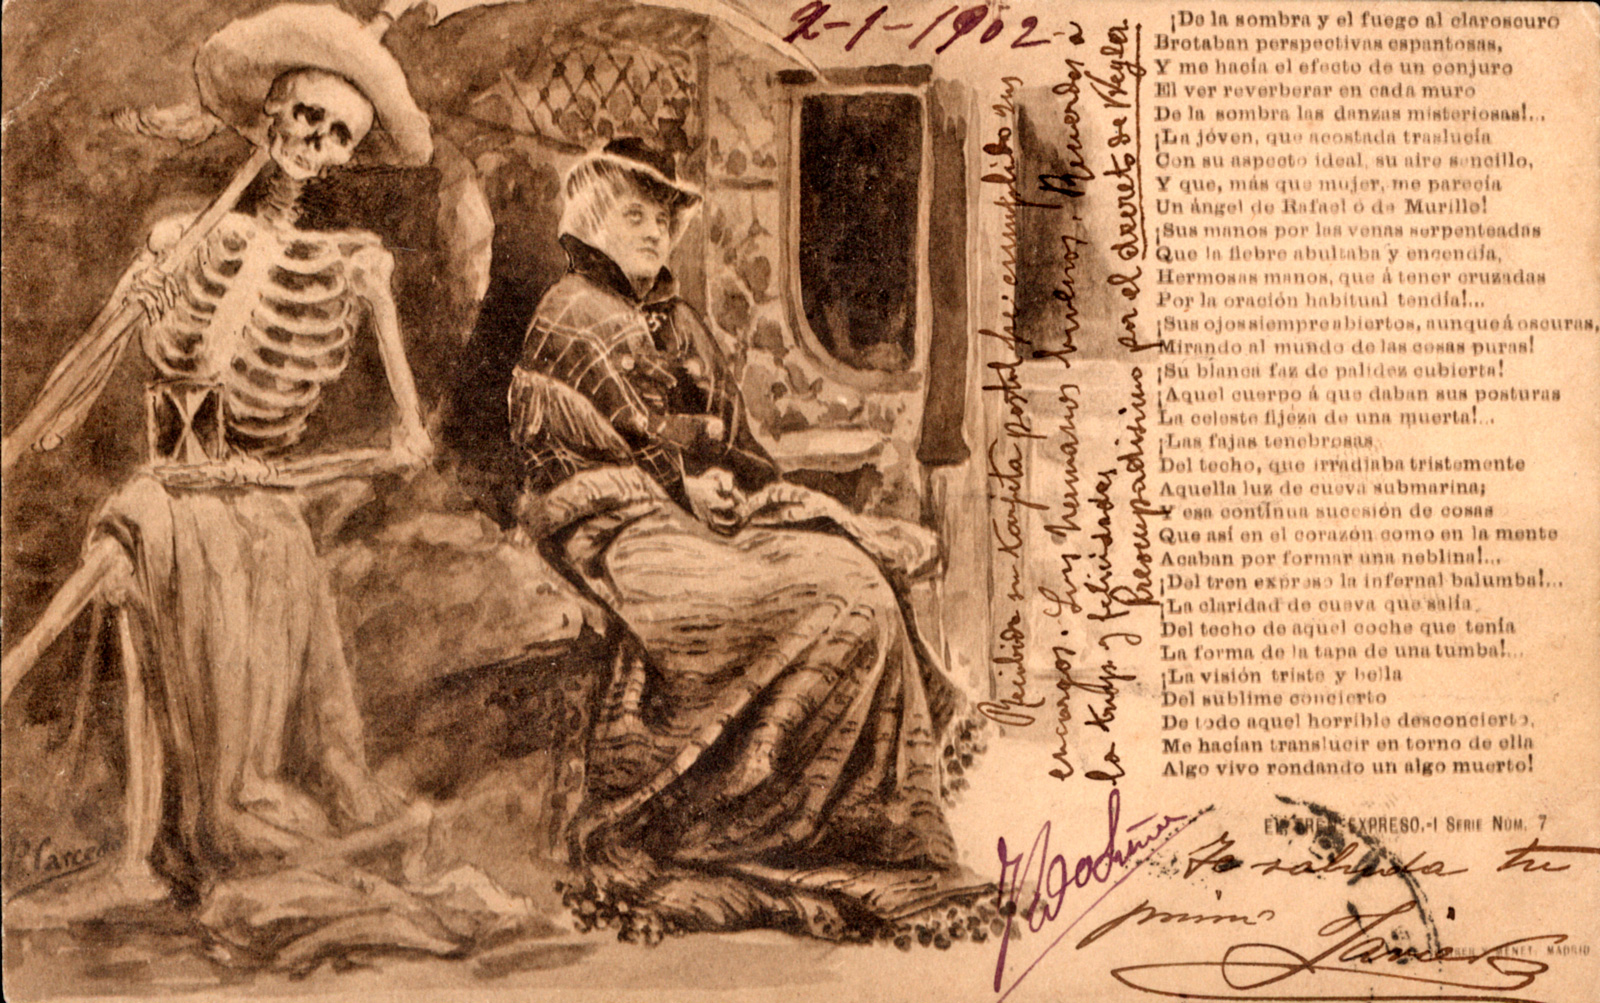 2-1-1902
¡De la sombra y el fuego al claroscuro
Brotaban perspectivas espantosas,
Y me hacía el efecto de un conjuro
El ver reverberar en cada muro
De la sombra las danzas misteriosas!...
¡La jóven, que acostada traslucía
Con su aspecto ideal, su aire sencillo,
Y que, más que mujer, me parecía
Un ángel de Rafael ó de Murillo!
¡Sus manos por las venas serpenteadas
Que la fiebre abultaba y encendía,
Hermosas manos, que á tener cruzadas
Por la oración habitual tendía!...
¡Sus ojos siempre abiertos, aunque á oscuras,
Mirando al mundo de las cosas puras!
¡Su blanca faz de palidez cubierta!
¡Aquel cuerpo á que daban sus posturas
La celeste fijeza de una muerta!...
¡Las fajas tenebrosas
Del techo, que irradiaba tristemente
Aquella luz de cueva submarina;
Y esa contínua sucesión de cosas
Que así en el corazón como en la mente
Acaban por formar una neblina!...
¡Del tren expreso la infernal balumba!...
¡La claridad de cueva que salía
Del techo de aquel coche que tenía
La forma de la tapa de una tumba!...
¡La visión triste y bella
Del sublime concierto
De todo aquel horrible desconcierto,
Me hacían translucir en torno de ella
Algo vivo rondando un algo muerto!
EL TREN EXPRESO.-I SERIE NÚM. 7
Recibida su tarjita postal he cumplido sus
encargos. Sus hermanos buenos. Recuerdos á
la tuya y felicidades por el decreto de
Presupuadisimo
Te saluda tu
primo
Javier
MENET. MADRID